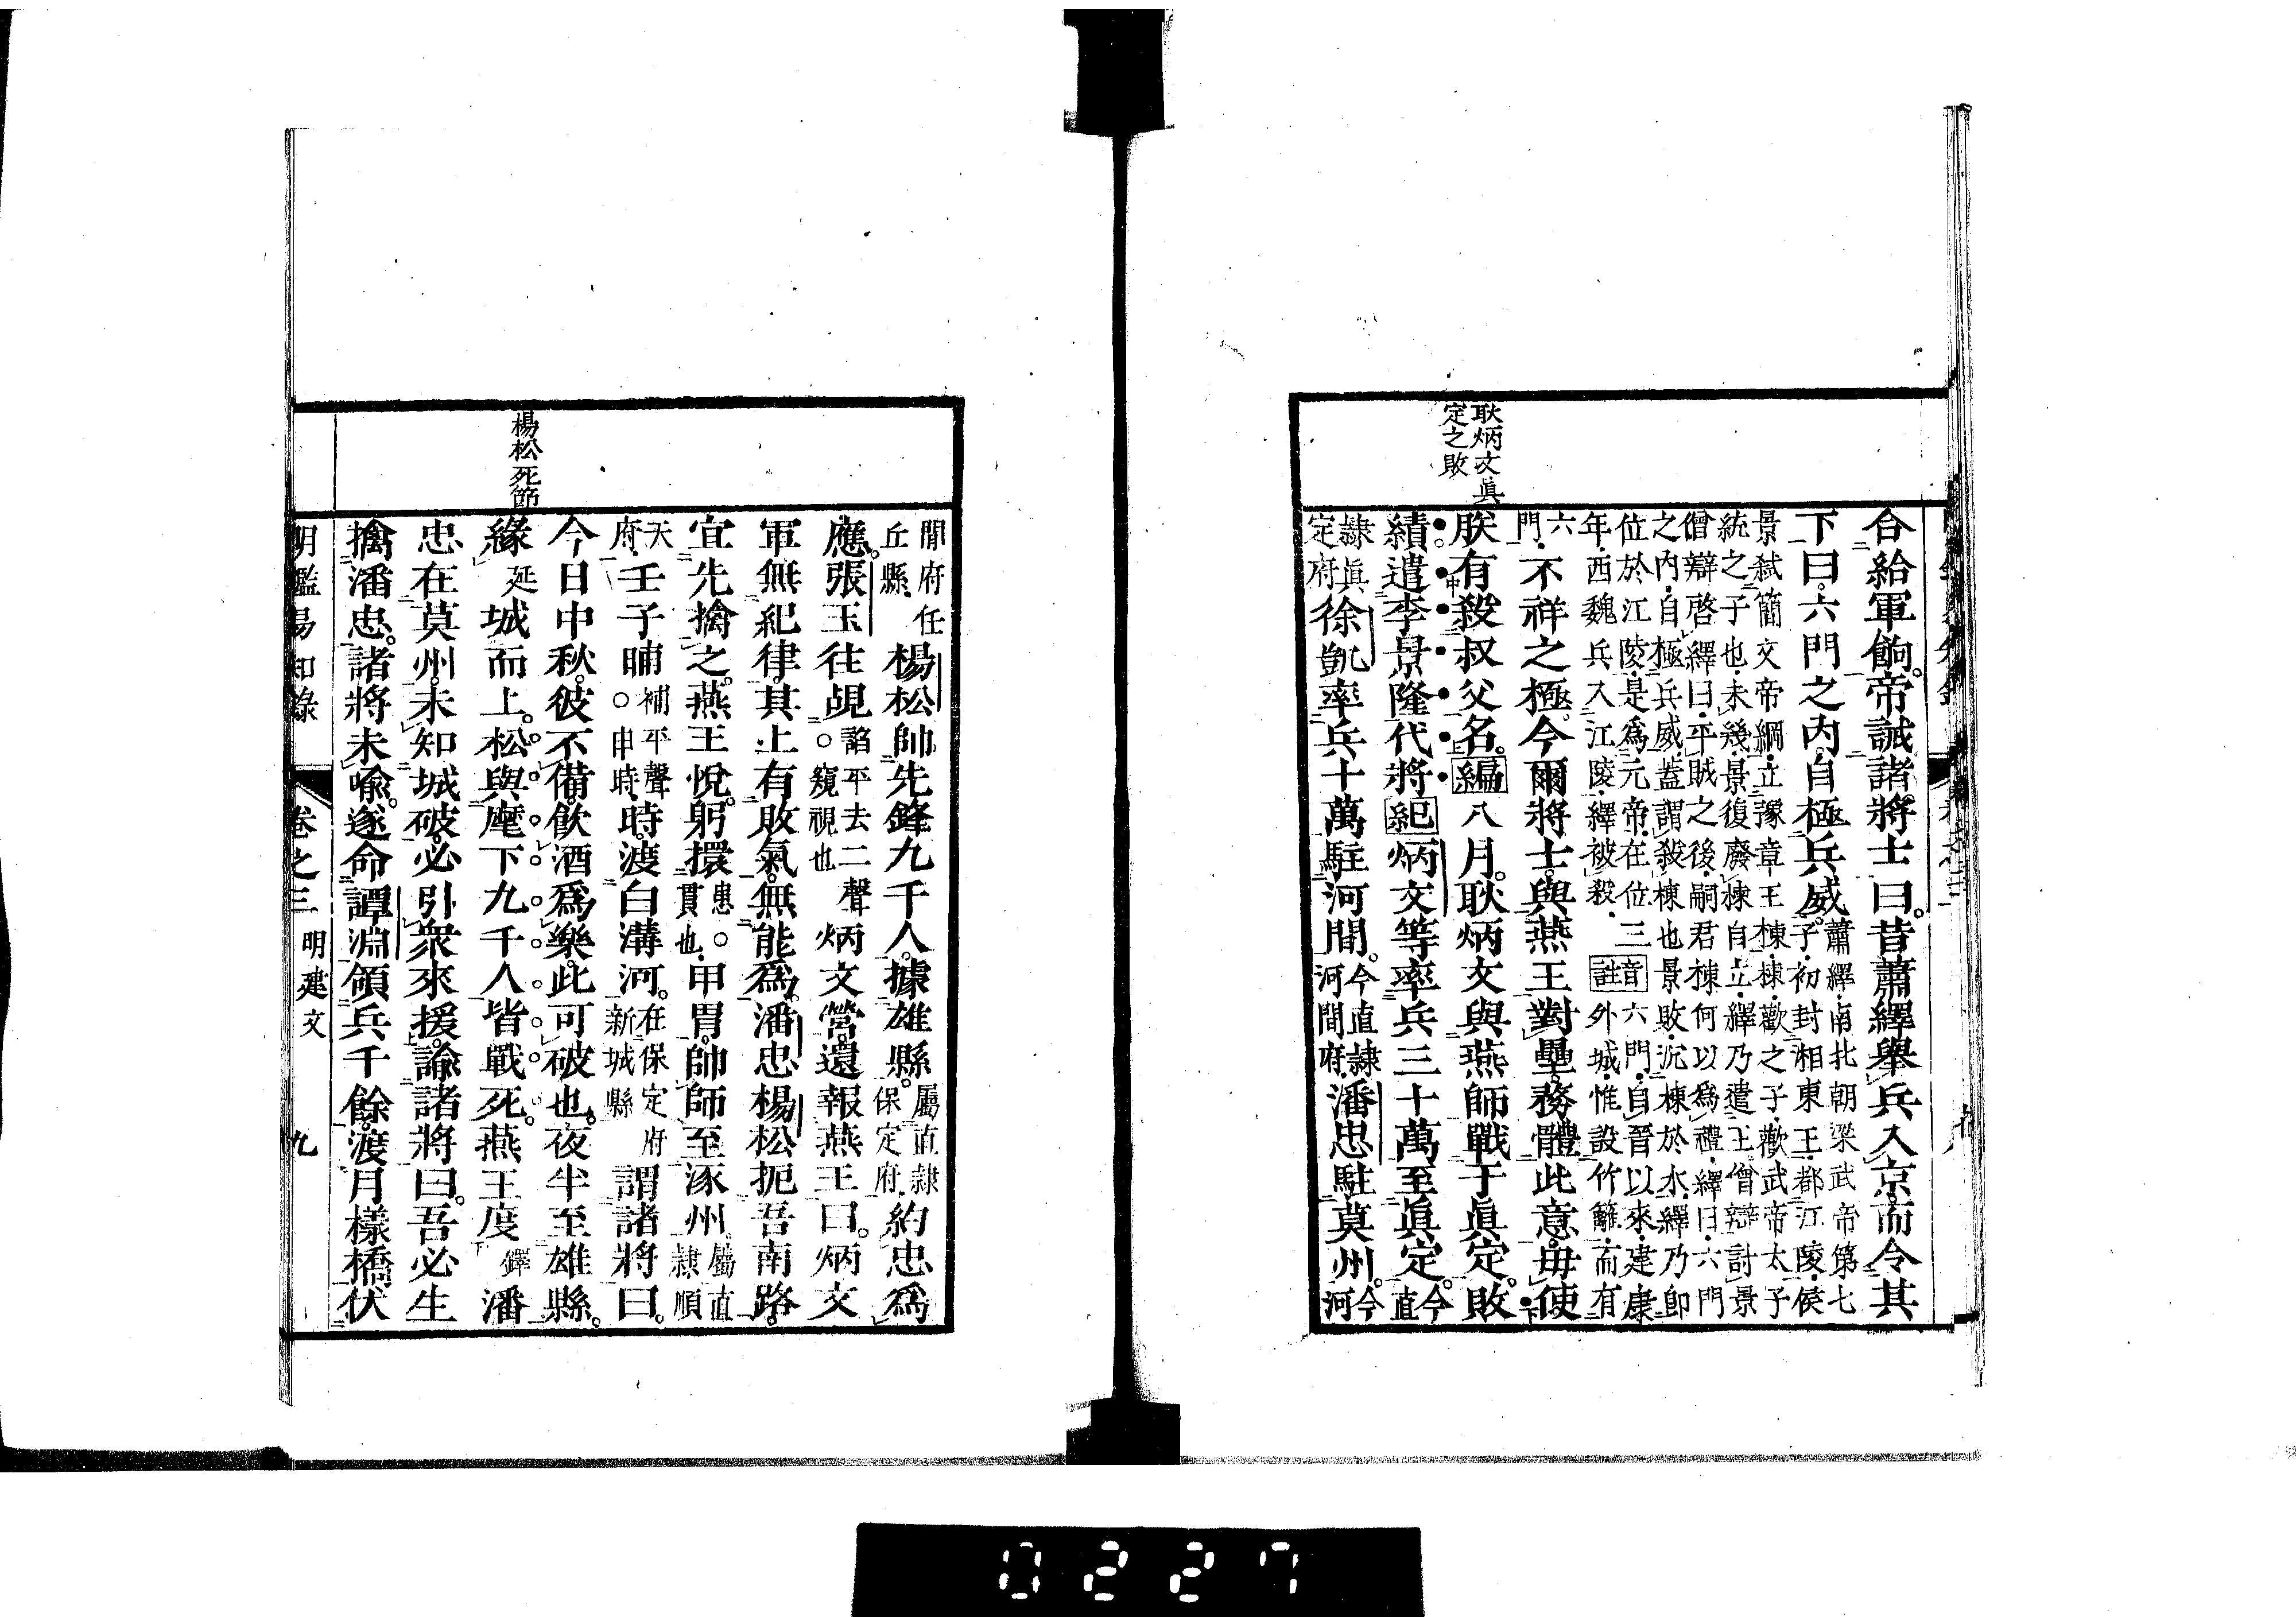 耿炳文眞
定之敗
合給軍餉。帝誡諸將士曰。昔蕭繹舉兵入京。而令其
下曰。六門之內。自極兵威。蕭繹南北朝梁武帝第七
子初封湘東王都江陵侯
景弑簡文帝綱立豫章王棟棟歡之子歡武帝太子
統之子也未幾景復廢棟自立繹乃遣王僧辯討景
僧辯啓繹曰平賊之後嗣君棟何以爲禮繹曰六門
之內自極兵威蓋謂殺棟也景敗沉棟於水繹乃卽
位於江陵是爲元帝在位三
年西魏兵入江陵繹被殺
音註六門自晉以來建康
外城惟設竹籬而有
六門不祥之極。今爾將士。與燕王對壘。務體此意。毋使
朕有殺叔父名。編八月。耿炳文與燕師戰于眞定。敗
績遣李景隆代將紀炳文等率兵三十萬至眞定。今直
隷眞定府徐凱率兵十萬駐河間。今直隷河間府潘忠駐莫州。今河
楊松死節
間府任丘縣楊松帥先鋒九千人。據雄縣。屬直隷保定府約忠爲
應。張玉往覘諂平去二聲○窺視也炳文營。還報燕王曰。炳文
軍無紀律。其上有敗氣。無能爲。潘忠楊松扼吾南路。
宜先擒之。燕王悅。躬擐患○貫也甲冑。帥師至涿州屬直隷順
天府壬子晡補平聲○申時時。渡白溝河。在保定府新城縣謂諸將曰。
今日中秋。彼不備。飲酒爲樂。此可破也。夜半至雄縣。
緣延城而上。松與麾下九千人皆戰死。燕王度鐸潘
忠在莫州。未知城破。必引衆來援。諭諸將曰。吾必生
擒潘忠。諸將未喩。遂命譚淵領兵千餘。渡月樣橋伏
明鑑易知錄 卷之三 明建文 九
0227